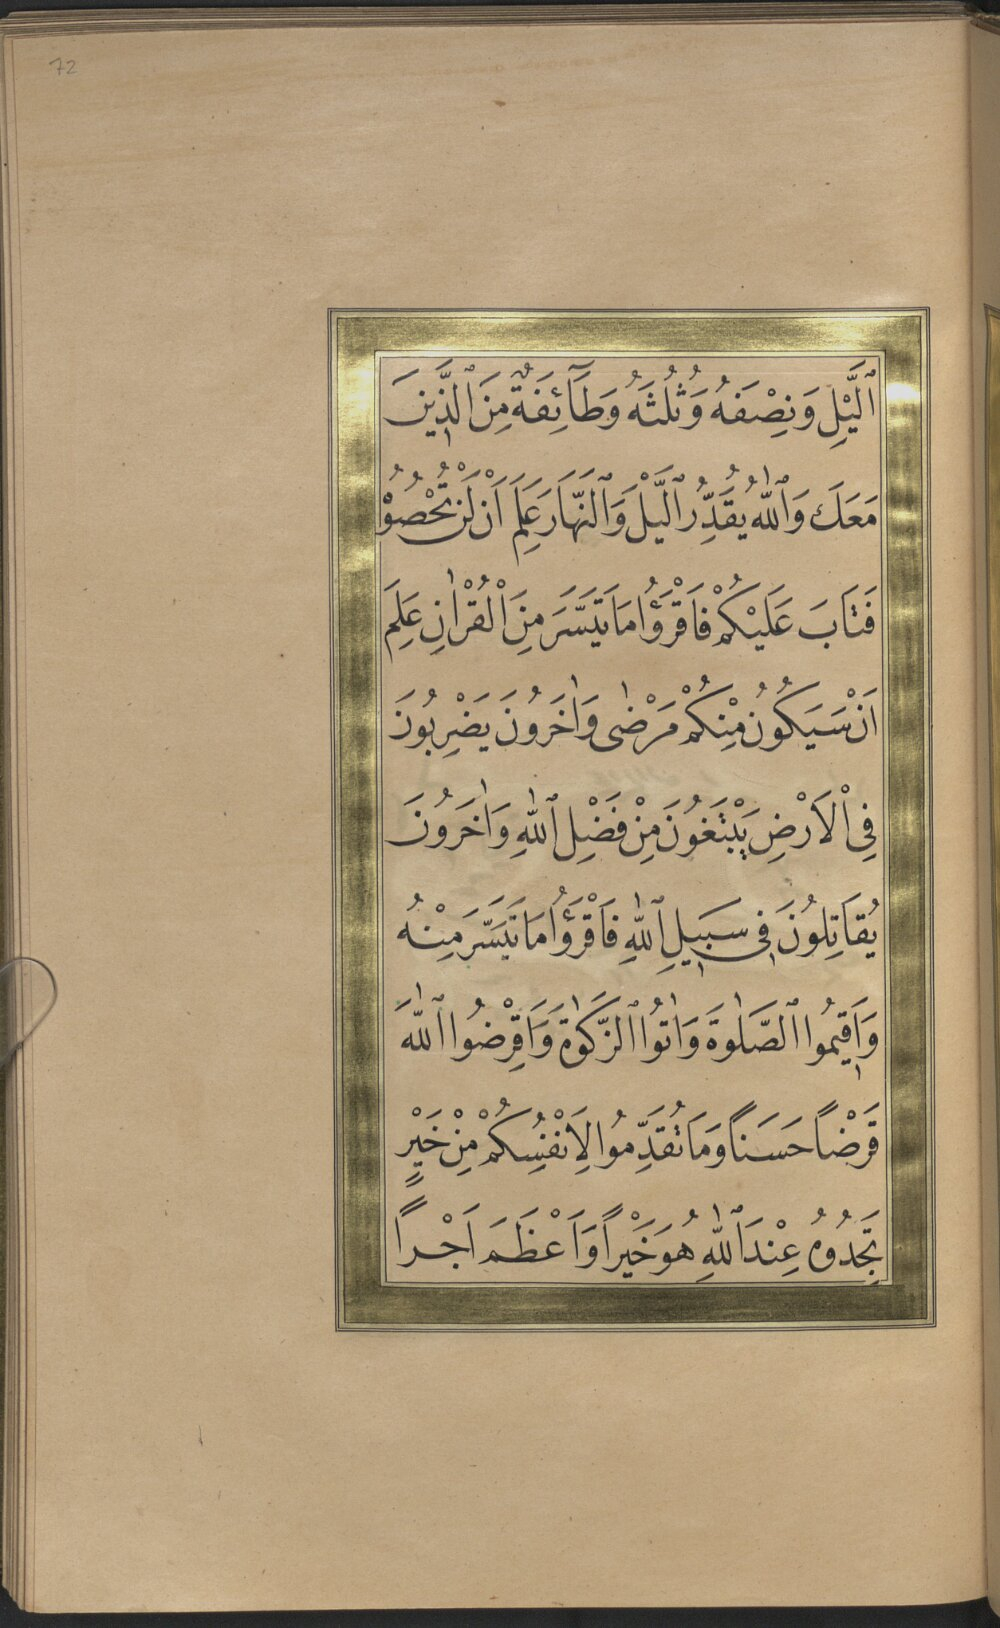 72
ٱلَّيْلِ وَنِصْفَهُ وَثُلُثَهُ وَطَآئِفَةٌ مِنَ ٱلَّذِينَ
مَعَكَ وَٱللّٰهُ يُقَدِّرُ ٱلَّيْلَ وَٱلنَّهَارَ عَلِمَ اَنْ لَنْ تُحْصُوْ
فَتَابَ عَلَيْكُمْ فَاقْرَؤُا مَا تَيَسَّرَ مِنَ الْقُرْاٰنِ عَلِمَ
اَنْ سَيَكُونُ مِنْكُمْ مَرْضٰى وَاٰخَرُونَ يَضْرِبُونَ
فِى الْاَرْضِ يَبْتَغُونَ مِنْ فَضْلِ ٱللّٰهِ وَاٰخَرُونَ
يُقَاتِلُونَ فِى سَبِيلِ ٱللّٰهِ فَاقْرَؤُا مَا تَيَسَّرَ مِنْهُ
وَاَقِيمُوا ٱلصَّلٰوةَ وَاٰتُوا ٱلزَّكٰوةَ وَاَقْرِضُوا ٱللّٰهَ
قَرْضًا حَسَنًا وَمَا تُقَدِّمُوا لِاَنْفُسِكُمْ مِنْ خَيْرٍ
تَجِدُوهُ عِنْدَ ٱللّٰهِ هُوَ خَيْرًا وَاَعْظَمَ اَجْرًا